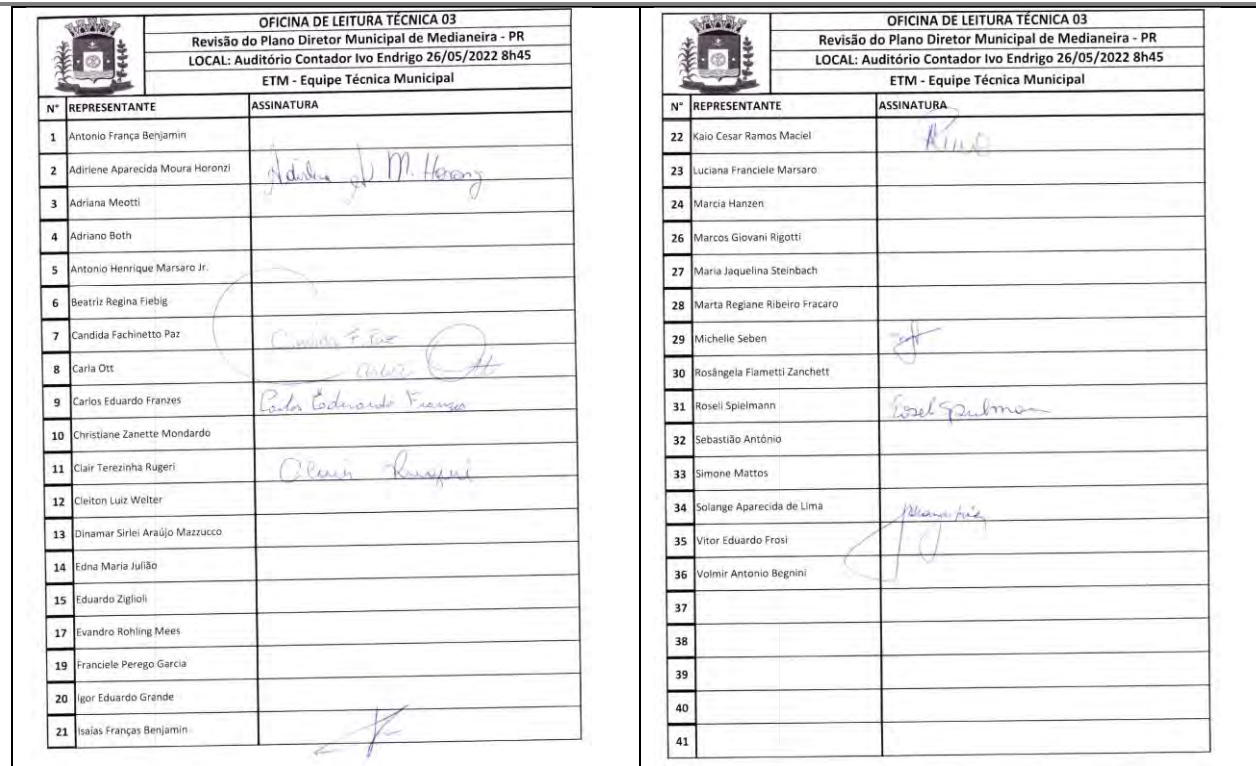 OFICINA DE LEITURA TÉCNICA 03
Revisão do Plano Diretor Municipal de Medianeira - PR
LOCAL: Auditório Contador Ivo Endrigo 26/05/2022 8h45
ETM - Equipe Técnica Municipal
N° REPRESENTANTE ASSINATURA
1 Antonio França Benjamin
2 Adirlene Aparecida Moura Horonzi
3 Adriana Meotti
4 Adriano Both
5 Antonio Henrique Marsaro Jr.
6 Beatriz Regina Fiebig
7 Candida Fachinetto Paz Candida F. Paz
8 Carla Ott
9 Carlos Eduardo Franzes Carlos Eduardo Franzes
10 Christiane Zanette Mondardo
11 Clair Terezinha Rugeri Clair Rugeri
12 Cleiton Luiz Welter
13 Dinamar Sirlei Araújo Mazzucco
14 Edna Maria Julião
15 Eduardo Ziglioli
17 Evandro Rohling Mees
19 Franciele Perego Garcia
20 Igor Eduardo Grande
21 Isaías Franças Benjamin
OFICINA DE LEITURA TÉCNICA 03
Revisão do Plano Diretor Municipal de Medianeira - PR
LOCAL: Auditório Contador Ivo Endrigo 26/05/2022 8h45
ETM - Equipe Técnica Municipal
N° REPRESENTANTE ASSINATURA
22 Kaio Cesar Ramos Maciel
23 Luciana Franciele Marsaro
24 Marcia Hanzen
26 Marcos Giovani Rigotti
27 Maria Jaquelina Steinbach
28 Marta Regiane Ribeiro Fracaro
29 Michelle Seben
30 Rosângela Fiametti Zanchett
31 Roseli Spielmann
32 Sebastião Antônio
33 Simone Mattos
34 Solange Aparecida de Lima
35 Vitor Eduardo Frosi
36 Volmir Antonio Begnini
37
38
39
40
41